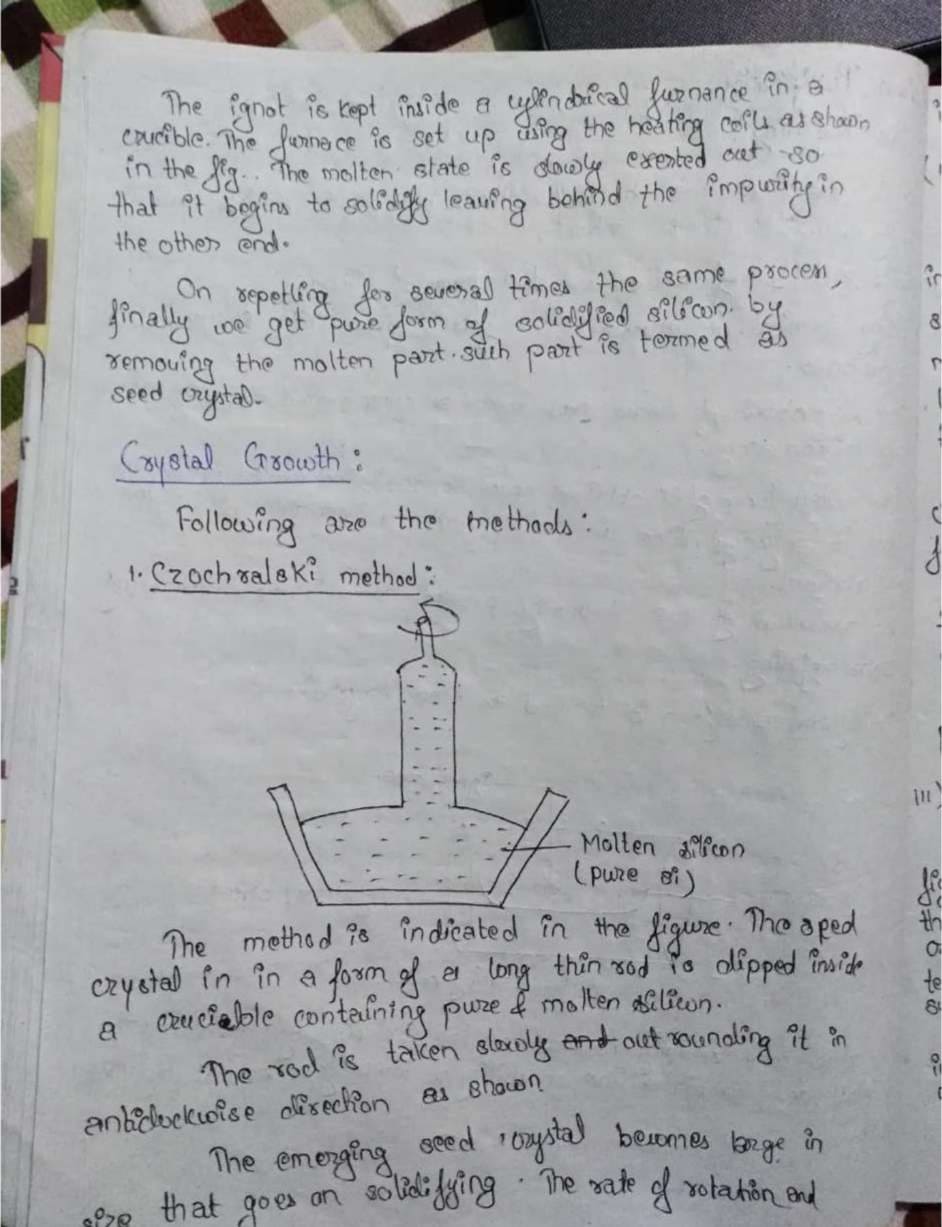 The ignot is kept inside a cylindrical furnance in a
crucible. The furnace is set up using the heating coils as shown
in the fig.. The molten state is slowly exerted out so
that it begins to solidify leaving behind the impurity in
the other end.
On repetling for several times the same process,
finally we get pure form of solidified silicon. by
removing the molten part. such part is termed as
seed crystal.
Crystal Growth :
Following are the methods :
1. Czochralski method :
Molten silicon
(pure si)
The method is indicated in the figure. The sped
crystal in in a form of a long thin rod is dipped inside
a crucible containing pure & molten silicon.
The rod is taken slowly and out rounding it in
anticlockwise direction as shown
The emerging seed crystal becomes large in
size that goes on solidifying. The rate of rotation and